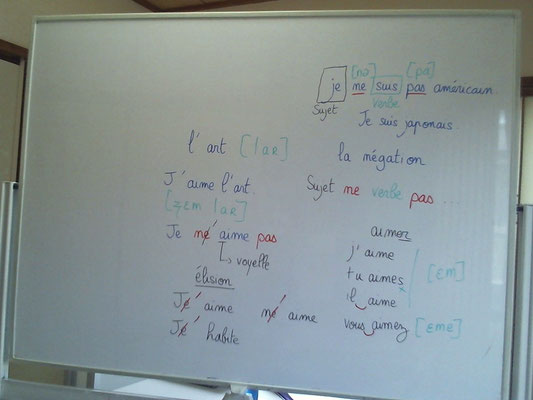 [nə] [pa]
je ne suis pas américain.
Sujet verbe
Je suis japonais.
l'art [laʀ]
la négation
J'aime l'art.
[ʒɛm laʀ]
Sujet ne verbe pas ...
Je ne' aime pas
voyelle
élision
Je' aime ne' aime
Je' habite
aimer
j'aime
tu aimes [ɛm]
il aime
vous aimez [ɛme]